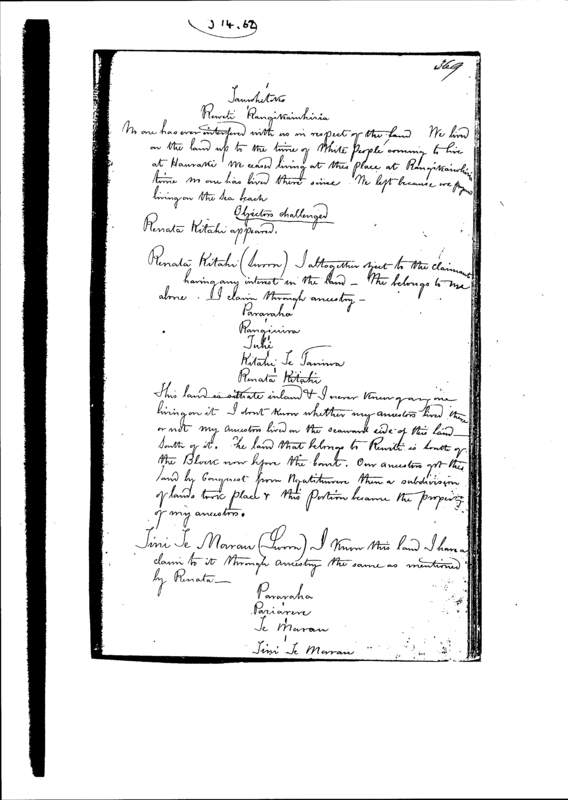 J 14.62
369
Tauwhetoko
Reweti Rangikaiwhiria
No one has ever interfered with us in respect of the land We lived
on the land up to the time of White People coming to live
at Hauraki We ceased living at this place at Rangikaiwhiria
time no one has lived there since We left because we
living on the sea beach
Objectors challenged
Renata Kitahi appeared.
Renata Kitahi (Sworn) I altogether object to the claimant
having any interest in the land – belongs to me
alone. I claim through ancestry –
Pararaha
Tuhi
Kitahi Te Taniwa
Renata Kitahi
This land is situate inland & I never knew of any one
living on it I dont know whether my ancestors lived there
or not my ancestors lived on the seaward side of this land
South of it. The land that belongs to Reweti is South of
the Block now before the Court. Our ancestors got this
land by Conquest from then a subdivision
of lands took place & this Portion became the property
of my ancestors.
Tini Te Marau (Sworn) I know this land I have a
claim to it through ancestry the same as mentioned
by Renata –
Pararaha
Te Marau
Tini Te Marau